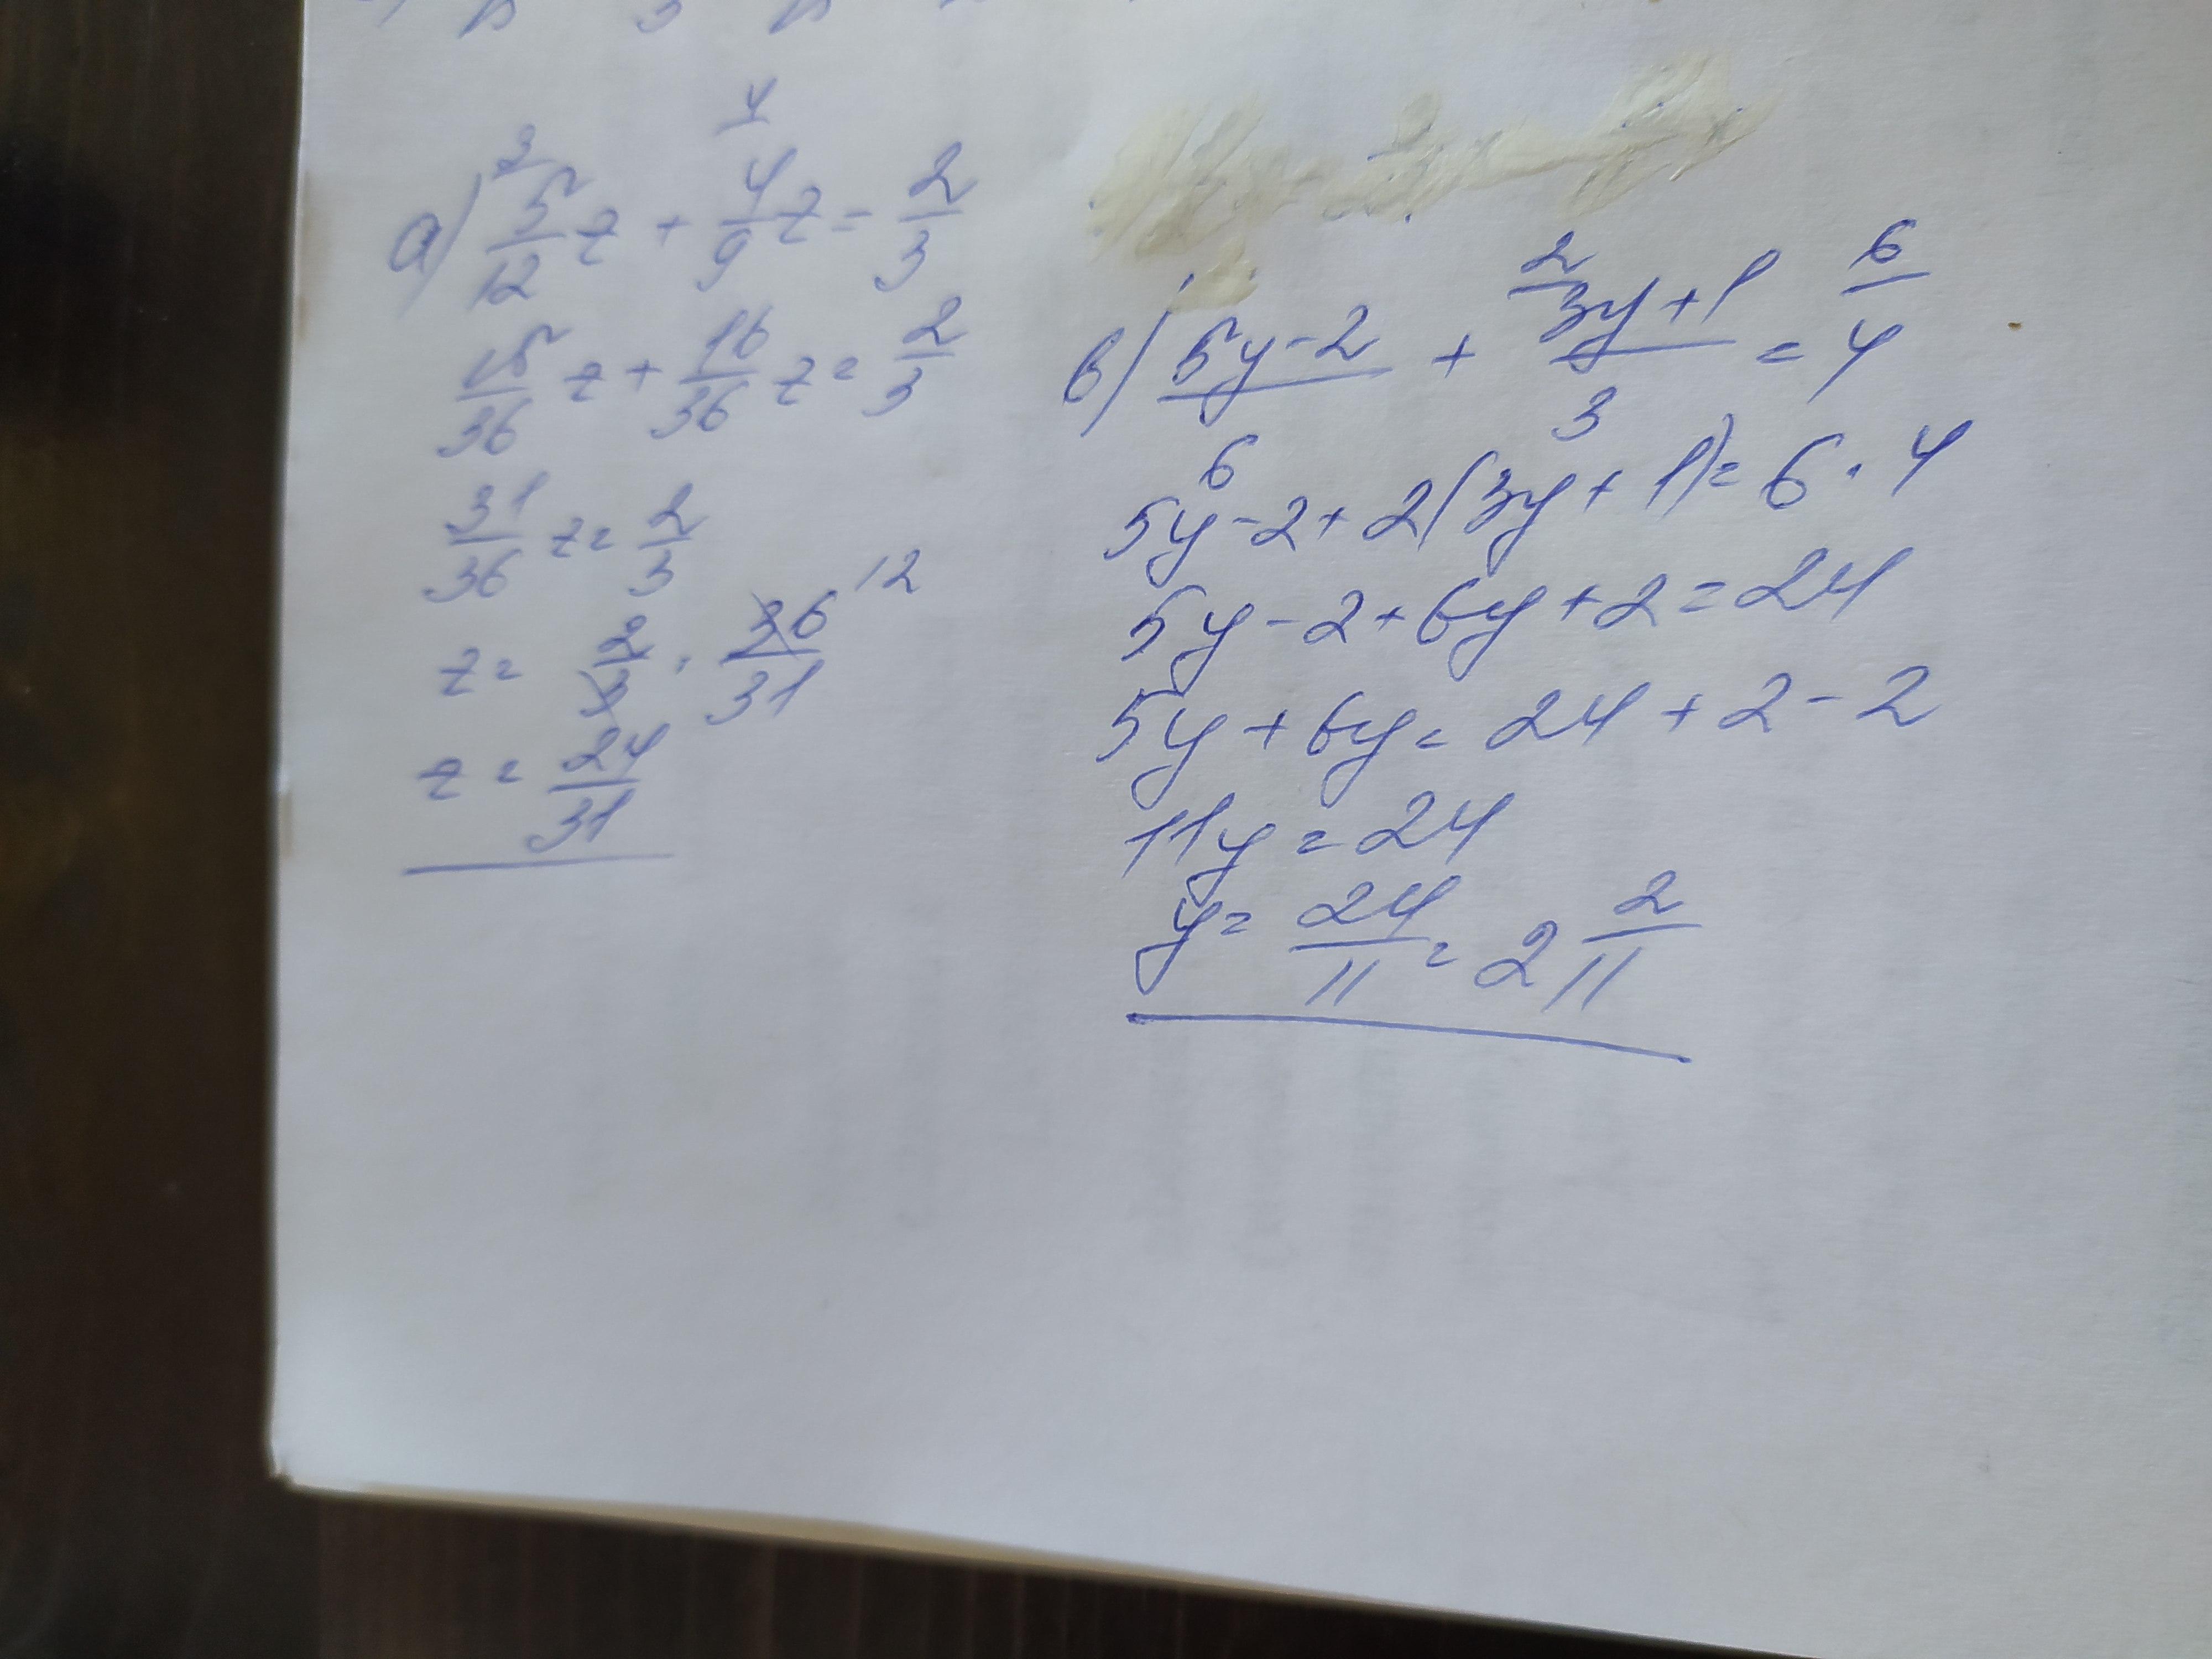 а) 3 5/12 z + 4 4/9 z = 2/3
15/36 z + 16/36 z = 2/3
31/36 z = 2/3
z = 2/3 · 36/31 12
z = 24/31
в) (5y-2)/6 + 2 (3y+1)/3 = 6 4
5y-2+2(3y+1)=6·4
5y-2+6y+2=24
5y+6y=24+2-2
11y=24
y=24/11=2 2/11